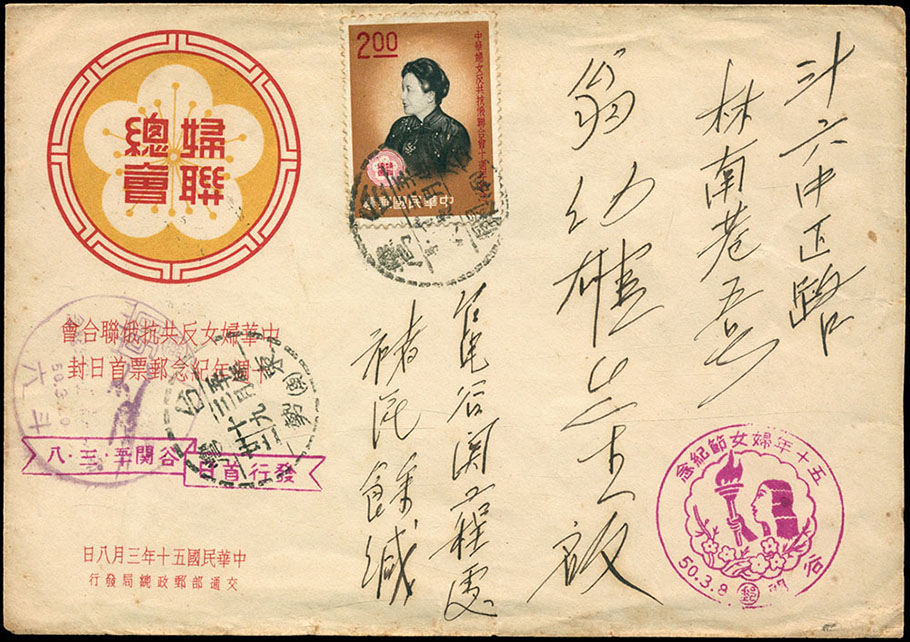 婦聯
總會
2.00
中華婦女反共抗俄聯合會十週年
中華民國郵票
斗六中正路
林南巷五号
翁幼雄先生啟
谷関工程處
緘
中華婦女反共抗俄聯合會
十週年紀念郵票首日封
谷關五・三・八
發行首日
斗六
五十年婦女節紀念
谷關
50.3.8
中華民國五十年三月八日
交通部郵政總局發行